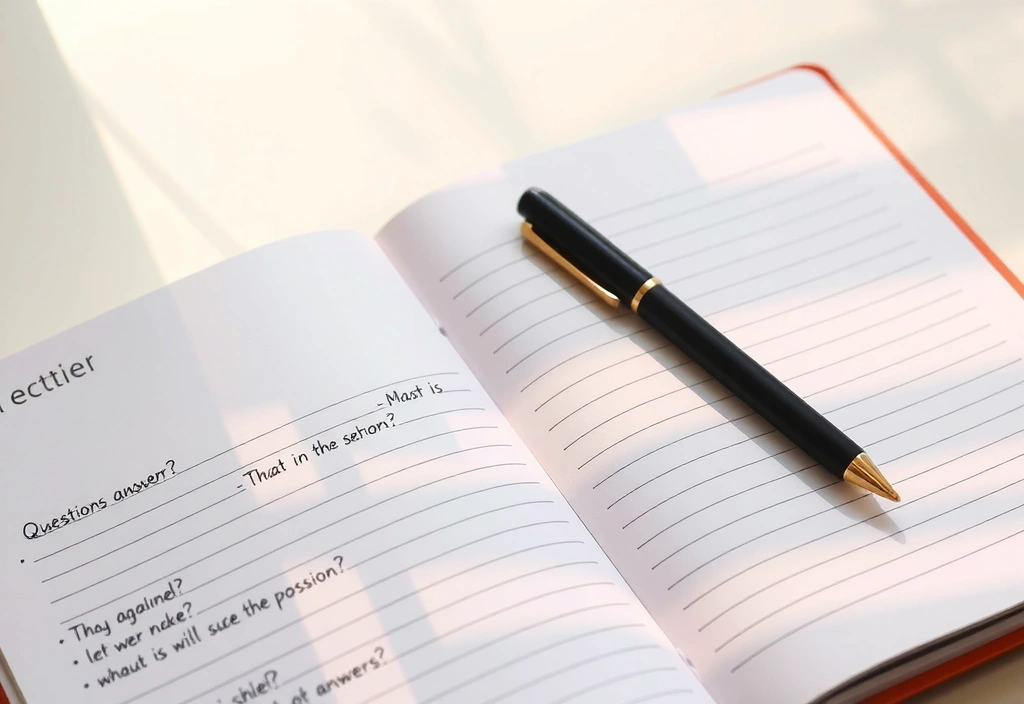 ecttier
- Mast is
Questions answerr? - That in the sehorı?
• Thoy agalinel?
• let wer ncke?
• whaut is will suce the possion?
shlel?
of anwers?